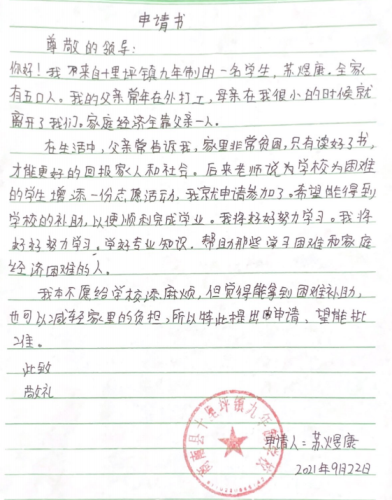 申请书
尊敬的领导:
你好!我原来自十里坪镇九年制的一名学生,苏煜康。全家
有五口人。我的父亲常年在外打工,母亲在我很小的时候就
离开了我们。家庭经济全靠父亲一人。
在生活中,父亲常告诉我,家里非常贫困,只有读好了书,
才能更好的回报家人和社会。后来老师说为学校为困难
的学生增添一份志愿活动,我就申请参加了。希望能得到
学校的补助,以便顺利完成学业。我将好好努力学习。我将
好好努力学习。学好专业知识,帮助那些学习困难和家庭
经济困难的人。
我本不愿给学校添麻烦,但觉得能拿到困难补助,
也可以减轻家里的负担,所以特此提出申请、望能批
准。
此致
敬礼
商南县十里坪镇九年制学校
申请人:苏煜康
2021年9月22日